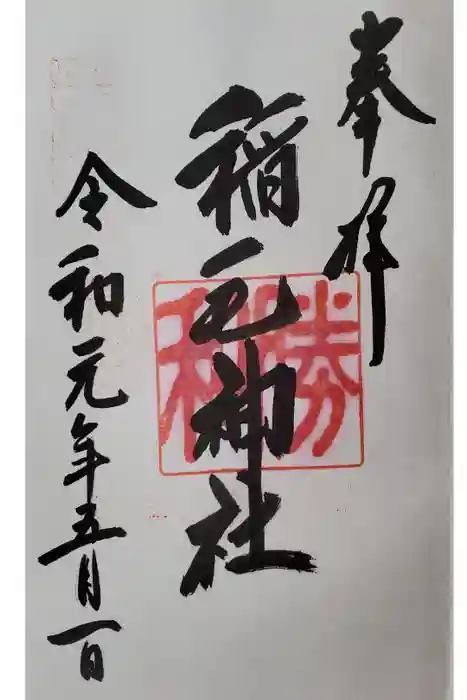 奉拝
稲毛神社
勝利
令和元年五月一日